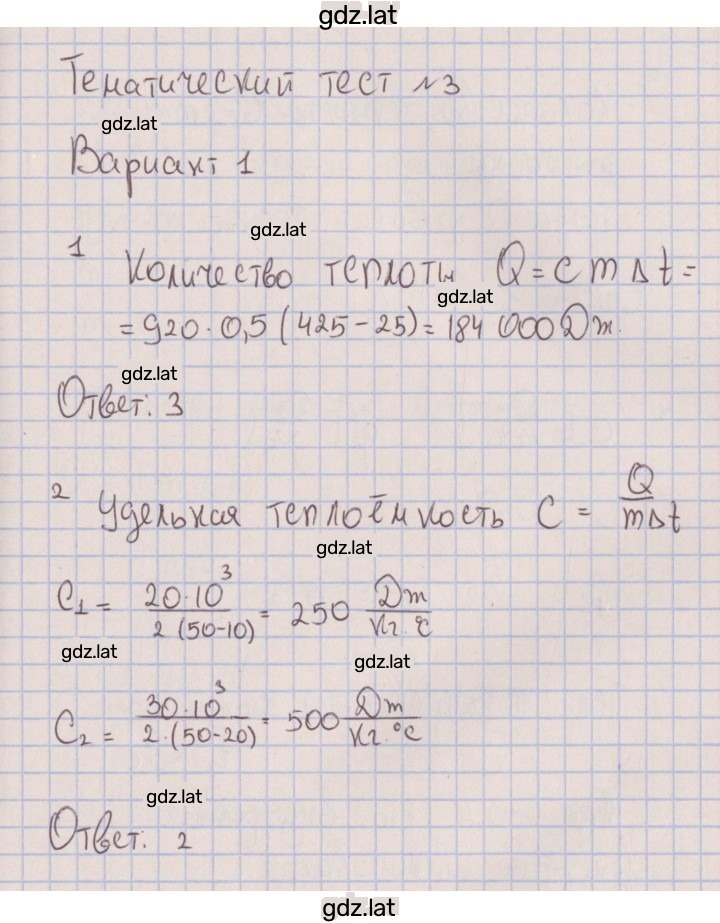 gdz.lat
Тематический тест №3
gdz.lat
Вариант 1
gdz.lat
1 Количество теплоты Q = c m Δt =
gdz.lat
= 920 · 0,5 (425 - 25) = 184 000 Дж.
gdz.lat
Ответ: 3
2 Удельная теплоёмкость C = Q / mΔt
gdz.lat
C₁ = 20·10³ / 2 (50-10) = 250 Дж / кг·°C
gdz.lat
gdz.lat
C₂ = 30·10³ / 2·(50-20) = 500 Дж / кг·°C
gdz.lat
Ответ: 2
gdz.lat